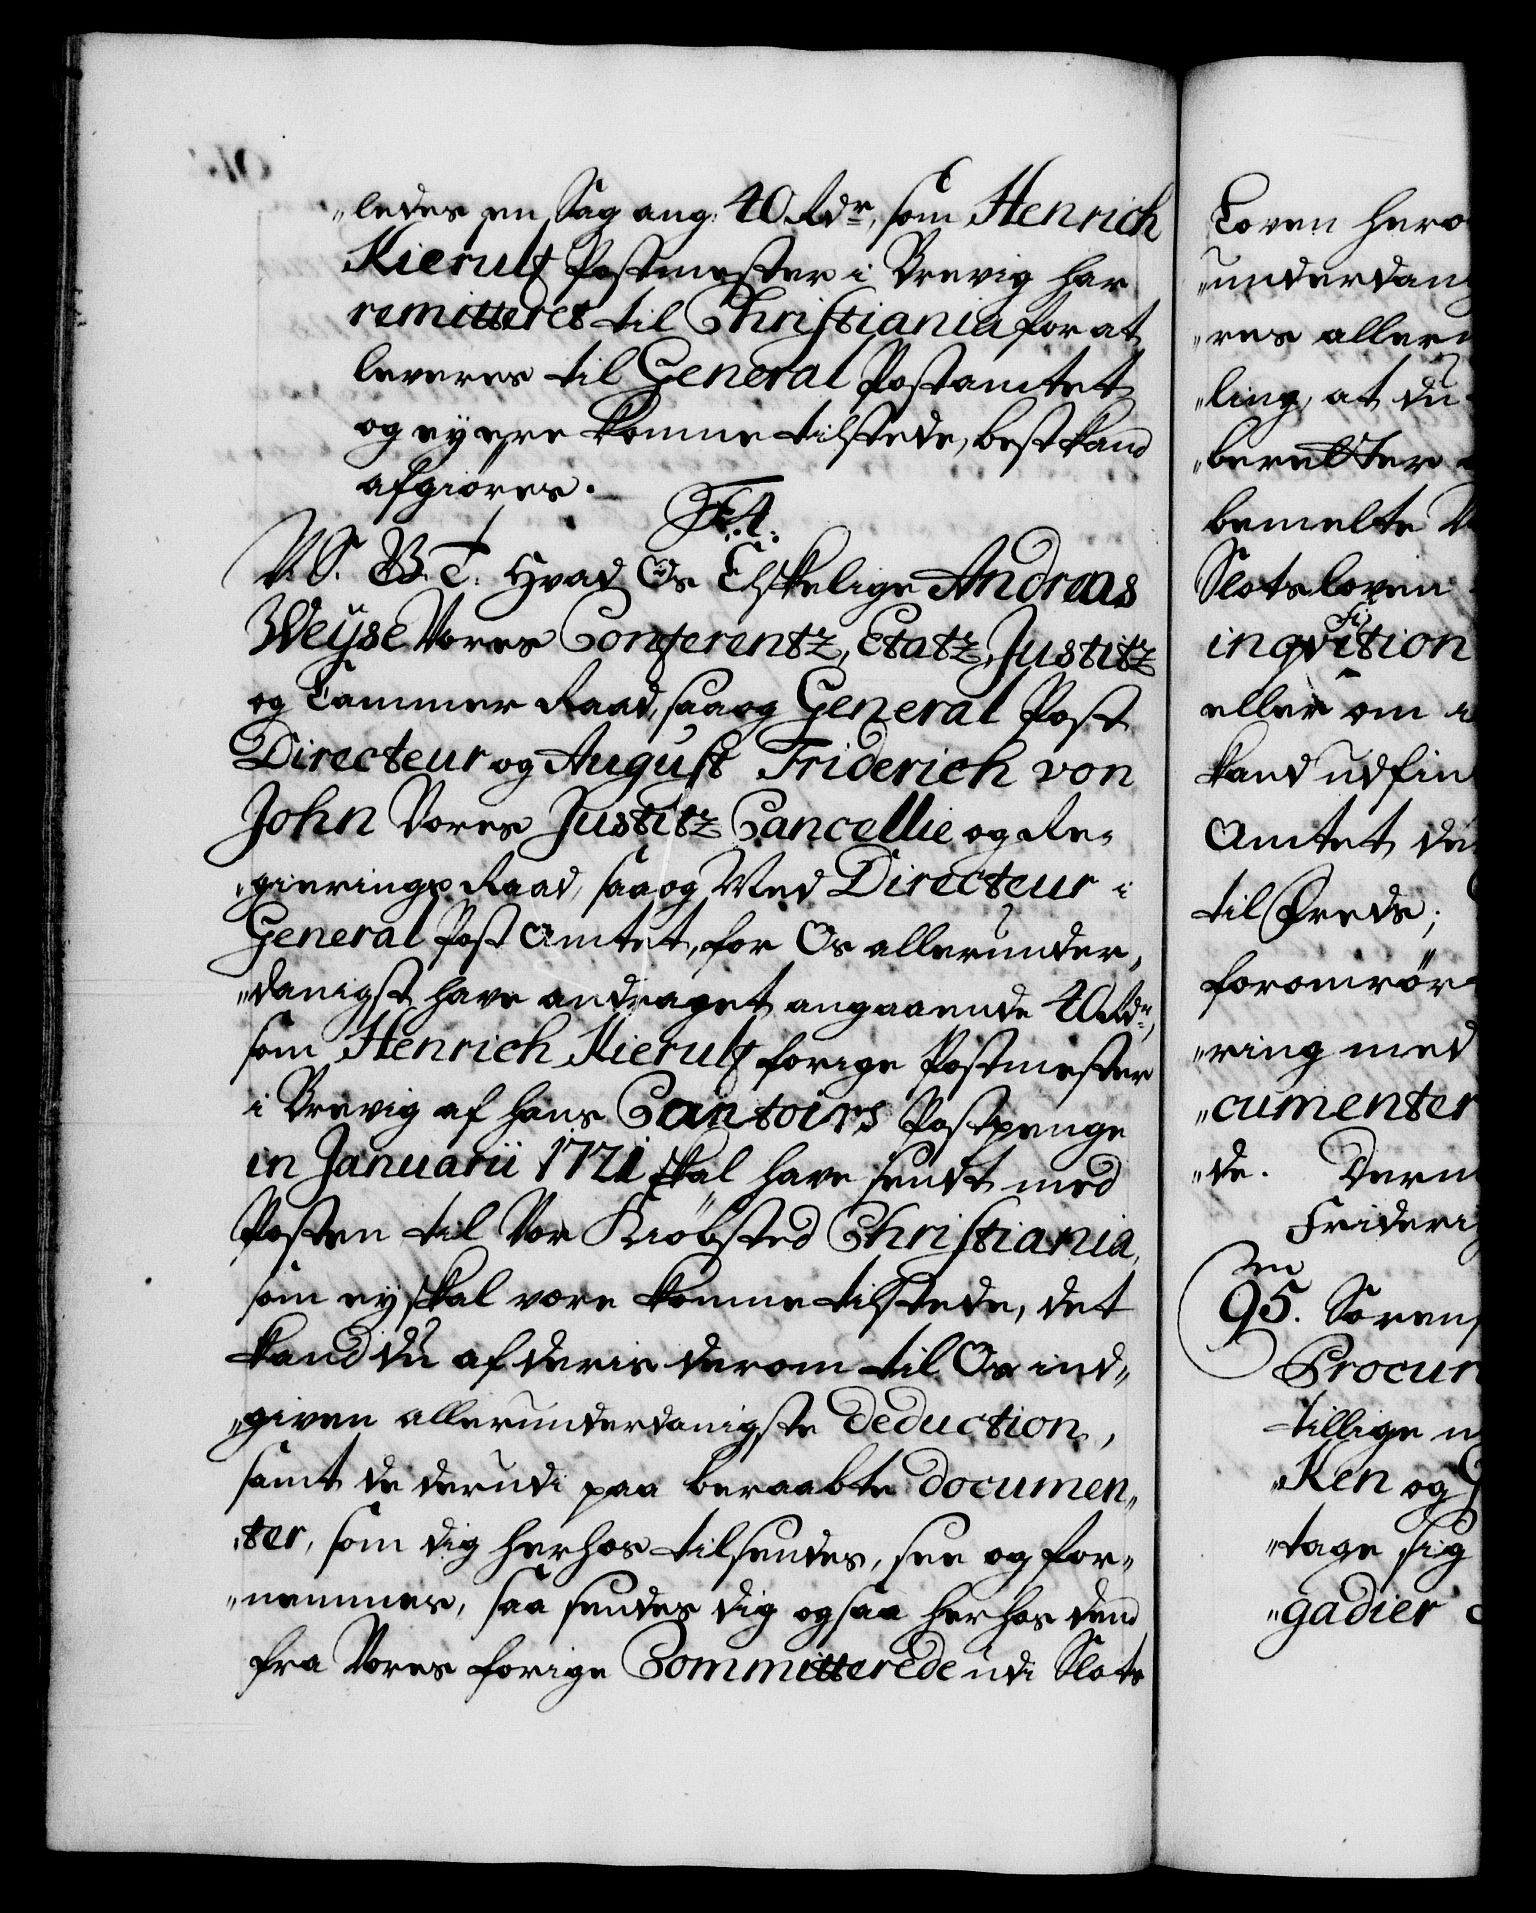 „ledes en Sag ang: 40 Rdr, som Henrich
Kierulf Postmester i Brevig har
remitteret til Christiania for at
leveres til General Postamtet
og ey ere komne tilstede, best kand
afgiøres.
F. 4.
V. S. G. T. Hvad Os Elskelige Andreas
Weÿse Vores Conferentz, Etatz, Justitz
og Cammer Raad, saa og General Post
Directeur og August Friderich von
John Vores Justitz Cancellie og Re„
„gierings Raad, saa og Med Directeur i
General Post Amtet, for Os allerunder„
„danigst have andraget angaaende 40 Rdr,
som Henrich Kierulf forige Postmester
i Brevig af hans Contoirs Postpenge
in Januarii 1721 skal have sendt med
Posten til Vor Kiøbsted Christiania,
som ey skal være komne tilstede, det
kand du af deris derom til Os ind„
„given allerunderdanigste deduction,
samt de derudi paa beraabte documen„
„ter, som dig herhos tilsendes, see og for„
„nemme, saa sendes dig ogsaa herhos dend
fra Vores forige Committerede udi Slots
Loven her
„underdan
„res aller
„ling, at du
„beretter
bemelte
Slotsloven
inqvisition
eller om
kand udfin
Amtet de
til freds;
foromrør
„ring med
„cumenter
„de. Derm
Frideri
95. Søren
Procur
tillige
„Ken og
„tage sig
„gadier